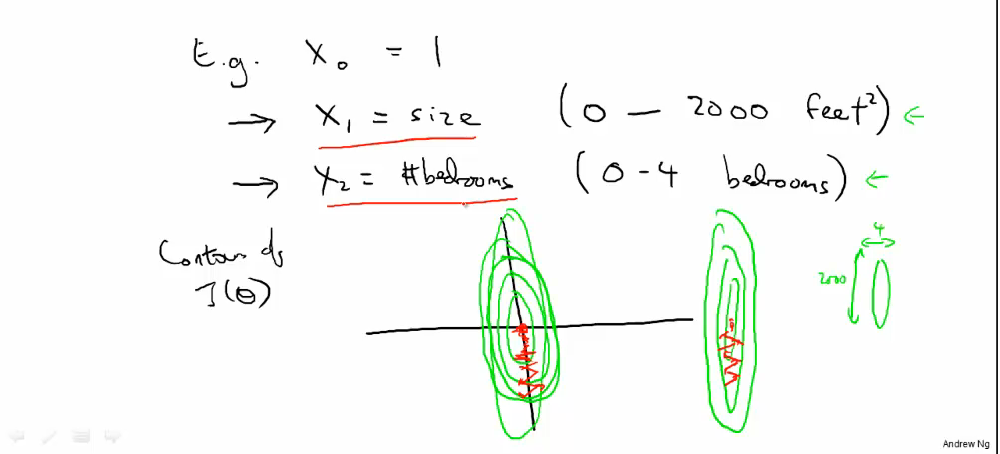 E.g. X₀ = 1
→ X₁ = size (0 — 2000 feet²) ←
→ X₂ = #bedrooms (0-4 bedrooms) ←
Contours
J(θ)
4
2000
Andrew Ng